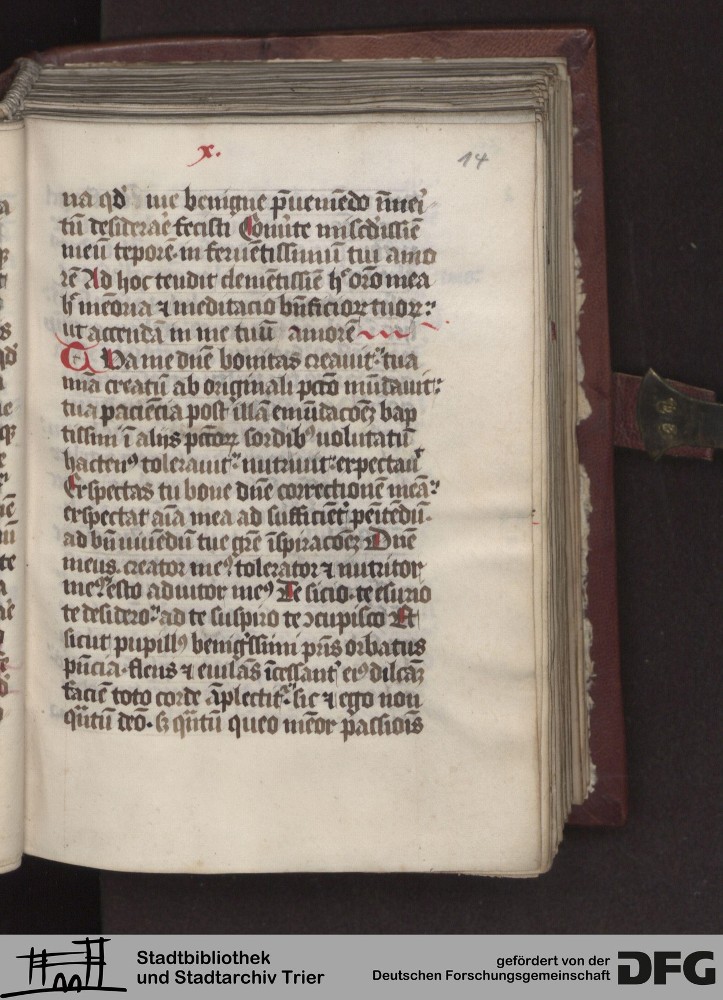 x.
14
na qd̕ me benigne p̄ueniēdo īmei
tū desiderāe fecisti Cōuīte misc̄dissiē
meū teporē in feruētissimū tui amo
rē Ad hoc tendit clemētissīē h̕ orō mea
h̕ mēoria ⁊ meditacio bn̄ficioꝝ tuoꝝ
ut accendā in me tuū amorē
Ua me dn̄e bonitas creauit tua
mīa creatū ab originali pctō mūdauit
tua paciēcia post illā emūdacōeꝫ bap
tissmi ī alijs pctōꝝ sordibꝰ uolutatū
hactenꝰ tolerauit nutriuit expectauͭ
Exspectas tu bone dn̄e correctionē meā
exspectat aīa mea ad sufficiēt peītēdū
ad bn̄ uiuēdū tue grē īspiracōeꝫ Dn̄e
meus creator meꝰ tolerator ⁊ nutritor
meꝰ esto adiutor meꝰ Te sicio te esurio
te desidero ad te suspiro te ↄcupisco Et
sicut pupillꝰ benigͥssimi pr̄is orbatus
pn̄cia flens ⁊ eiulās īcessant̕ eiꝰ dilcāꝫ
faciē toto corde āplectit̕ sic ⁊ ego non
qͣntū deō sꝫ qͣntū queo mēor passiōis
Stadtbibliothek
und Stadtarchiv Trier
gefördert von der
Deutschen Forschungsgemeinschaft
DFG